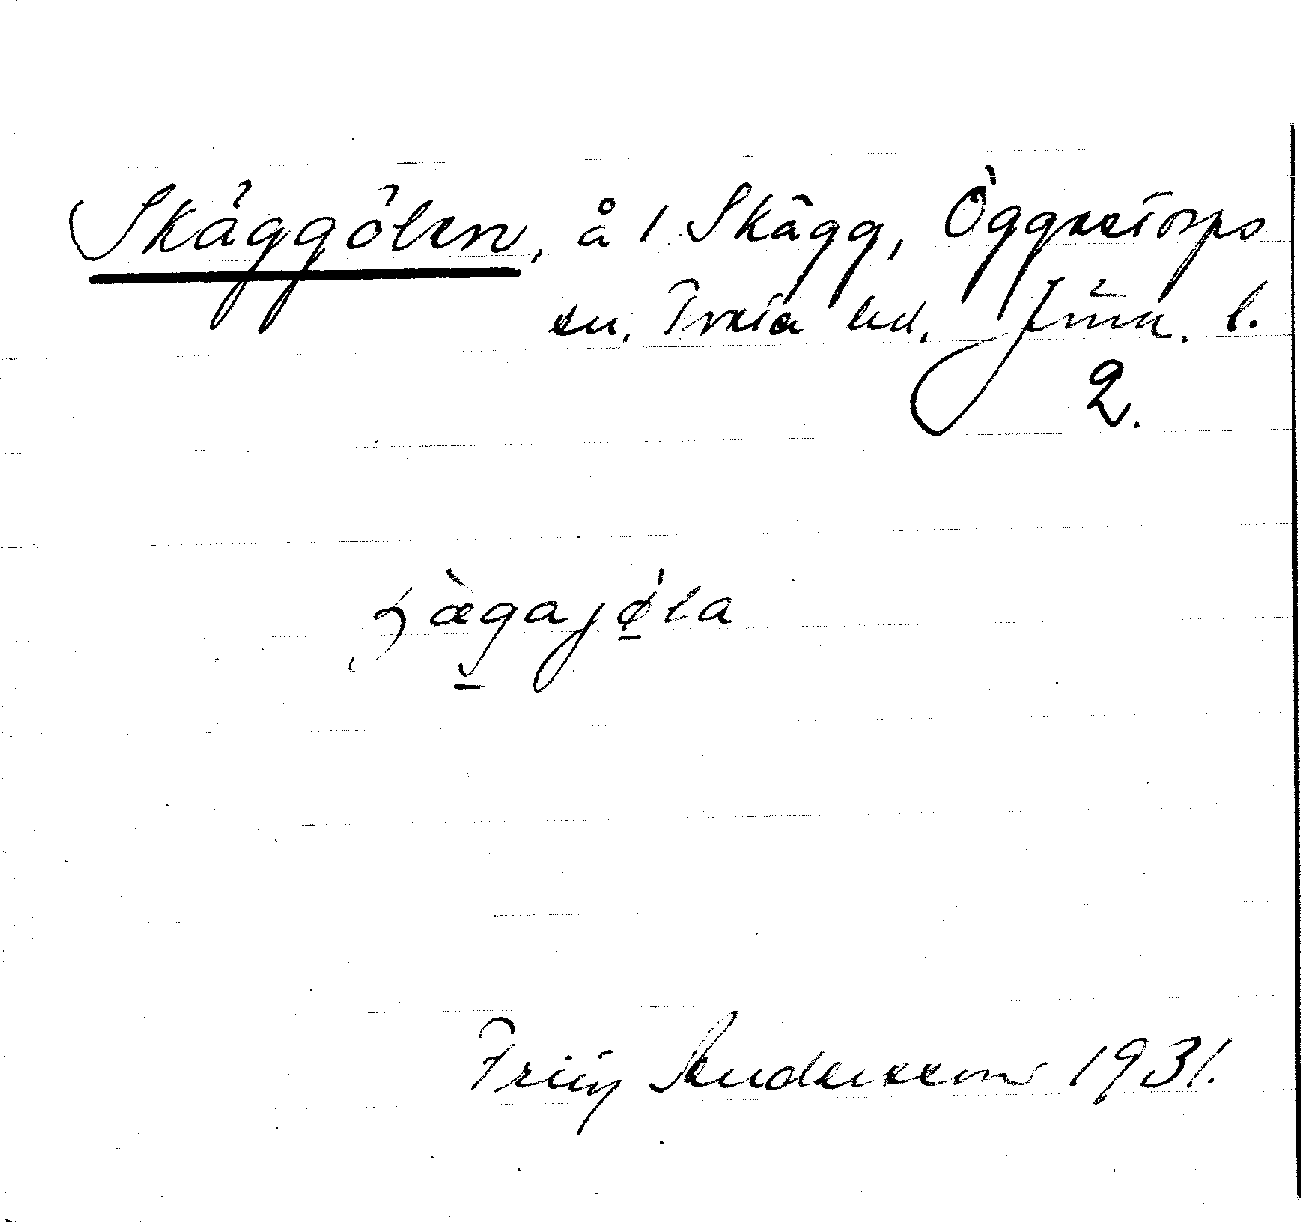 Skäggölen, å 1 Skägg, Öggestorps
sn, Tveta hd, Jönk. l.
2.
ʃæ̀gajø̀la
Fritz Andersson 1931.